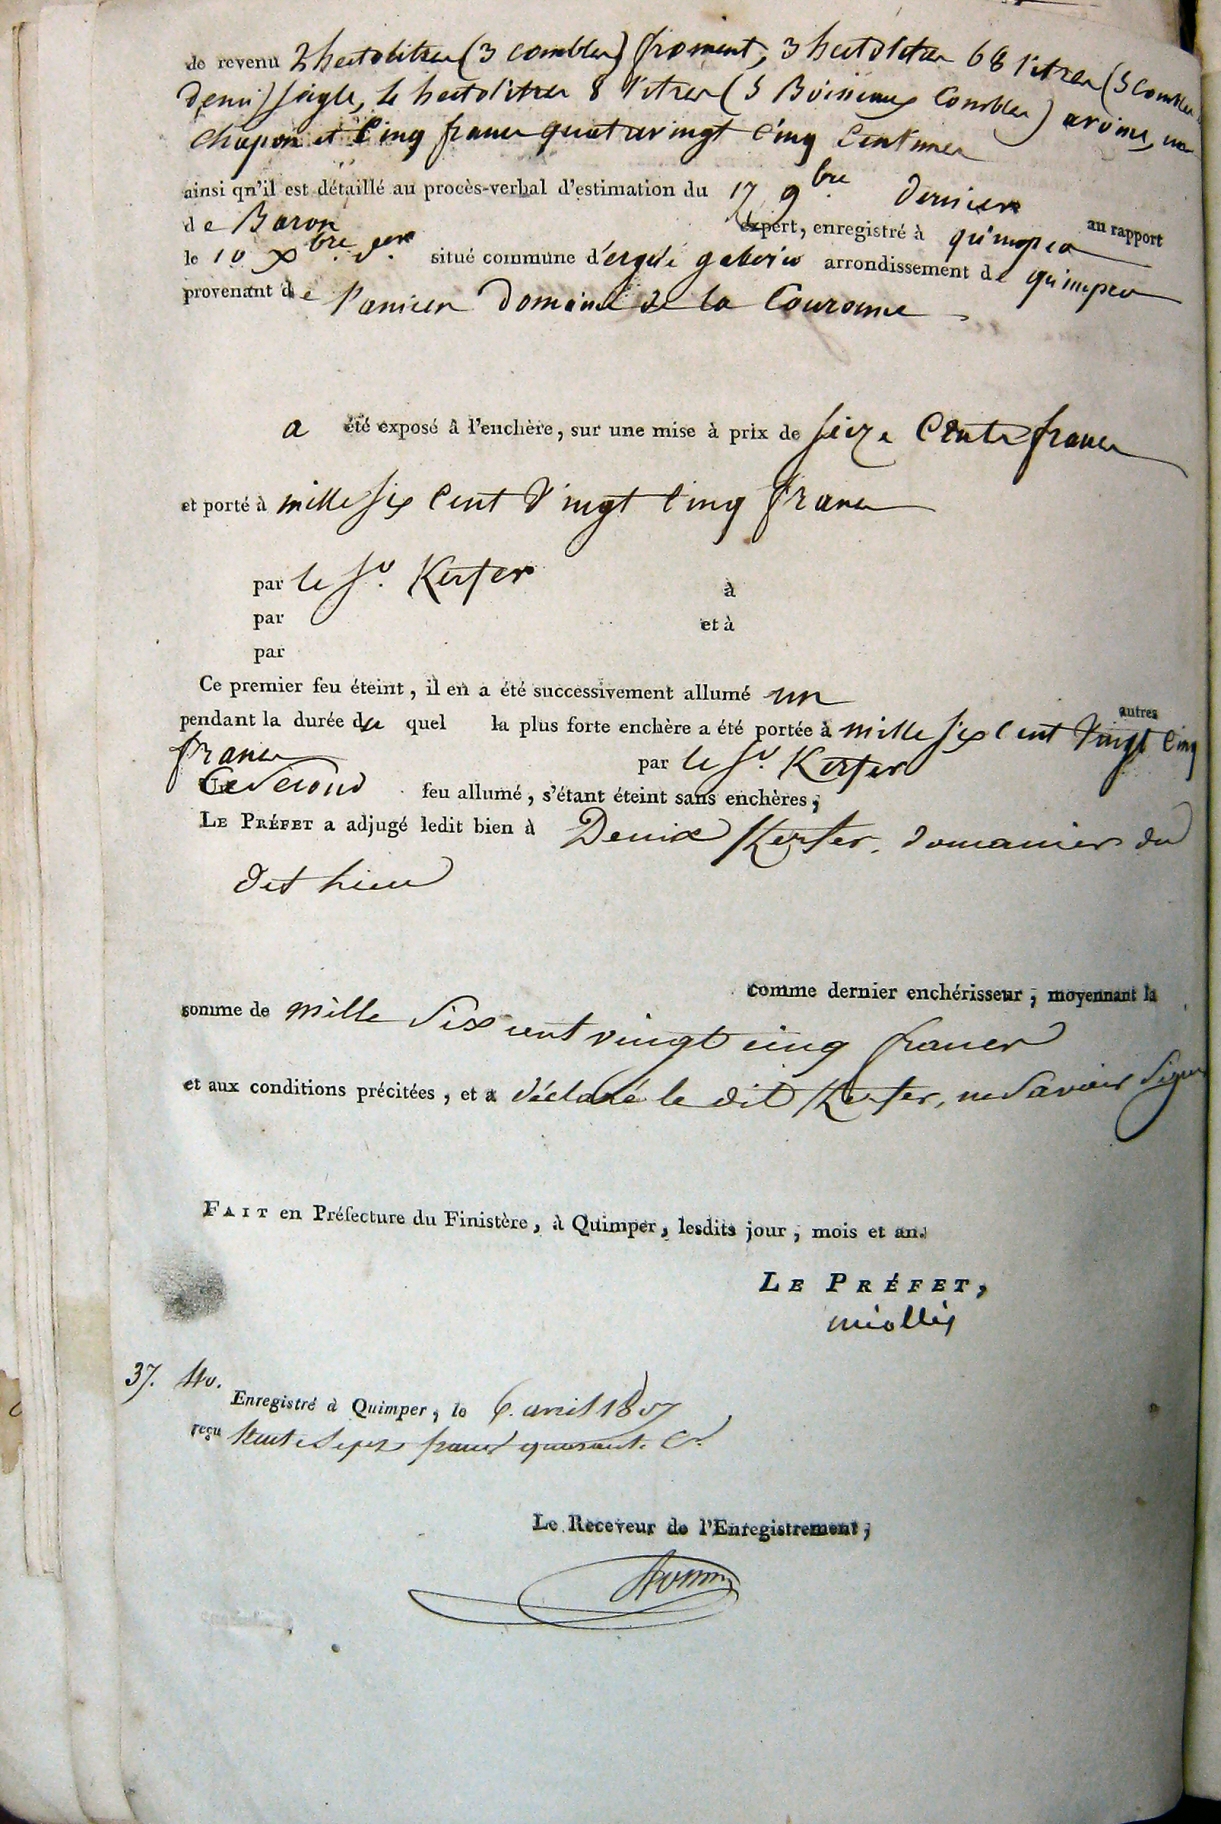 de revenu 2 hectolitres (3 combles) froment, 3 hectolitres 68 litres (5 combles
demi) seigle, le hectolitres 8 litres (5 Boisseaux Combles) avoine, un
chapon et Cinq francs quatrevingt Cinq Centimes
ainsi qu'il est détaillé au procès-verbal d'estimation du 17 9bre dernier au rapport
de Baron expert, enregistré à quimper
le 10 Xbre der situé commune d'ergué gaberic arrondissement de quimper
provenant de l'ancien domaine de la Couronne
a été exposé à l'enchère, sur une mise à prix de seize Cents francs
et porté à mille six Cent Vingt Cinq francs
par le Sr. Kerfer à
par et à
par
Ce premier feu éteint, il en a été successivement allumé un autres
pendant la durée du quel la plus forte enchère a été portée à mille six Cent Vingt Cinq
francs par le Sr. Kerfer
Ce second feu allumé, s'étant éteint sans enchères,
LE PRÉFET a adjugé ledit bien à Denis Kerfer, domanier du
dit lieu
comme dernier enchérisseur, moyennant la
somme de mille Six cent vingt cinq francs
et aux conditions précitées, et a déclaré le dit Kerfer, ne Savoir Signer
FAIT en Préfecture du Finistère, à Quimper, lesdits jour, mois et an.
LE PRÉFET,
miollis
37. 40.
Enregistré à Quimper, le 6. avril 1807
reçu trente Sept francs quarante Cs.
Le Receveur de l'Enregistrement,